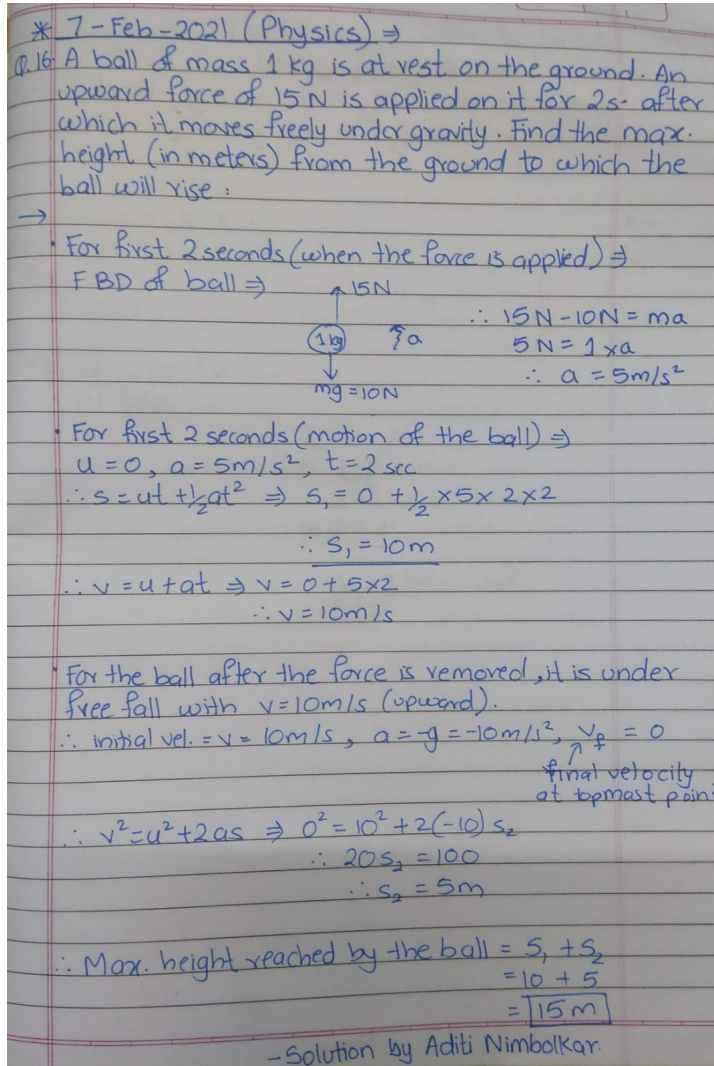 * 7-Feb-2021 (Physics) ⇒
Q.16 A ball of mass 1 kg is at rest on the ground. An
upward force of 15 N is applied on it for 2s. after
which it moves freely under gravity. Find the max.
height (in meters) from the ground to which the
ball will rise :
→
• For first 2 seconds (when the force is applied) ⇒
FBD of ball ⇒
15N
1 kg
a
mg = 10N
∴ 15N - 10N = ma
5N = 1 × a
∴ a = 5m/s²
• For first 2 seconds (motion of the ball) ⇒
u = 0, a = 5m/s², t = 2 sec
∴ s = ut + ½at² ⇒ S₁ = 0 + ½ × 5 × 2 × 2
∴ S₁ = 10m
∴ v = u + at ⇒ v = 0 + 5×2
∴ v = 10m/s
• For the ball after the force is removed, it is under
free fall with v = 10m/s (upward).
∴ initial vel. = v = 10m/s, a = -g = -10m/s², V_f = 0
final velocity
at topmost point
∴ v² = u² + 2as ⇒ 0² = 10² + 2(-10) S₂
∴ 20S₂ = 100
∴ S₂ = 5m
∴ Max. height reached by the ball = S₁ + S₂
= 10 + 5
= 15m
- Solution by Aditi Nimbolkar.